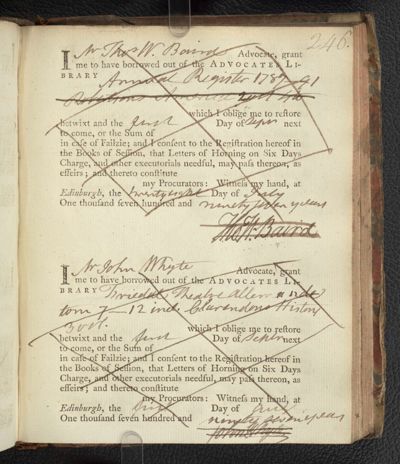 246.
I Mr Thos W. Baird Advocate, grant
me to have borrowed out of the ADVOCATES LI-
BRARY Annual Register 1789-91
Robertsons America
which I oblige me to restore
betwixt and the first Day of Sepr next
to come, or the Sum of
in case of Failzie; and I consent to the Registration hereof in
the Books of Session, that Letters of Horning on Six Days
Charge, and other executorials needful, may pass thereon, as
effeirs; and thereto constitute
my Procurators: Witness my hand, at
Edinburgh, the twentyeight Day of July
One thousand seven hundred and ninety seven years
Thos W. Baird
I Mr John Whyte Advocate, grant
me to have borrowed out of the ADVOCATES LI-
BRARY
tom 7 - 12 incl. Clarendons History
3 vol. which I oblige me to restore
betwixt and the first Day of Sepr next
to come, or the Sum of
in case of Failzie; and I consent to the Registration hereof in
the Books of Session, that Letters of Horning on Six Days
Charge, and other executorials needful, may pass thereon, as
effeirs; and thereto constitute
my Procurators: Witness my hand, at
Edinburgh, the first Day of
One thousand seven hundred and ninety seven years
John Whyte